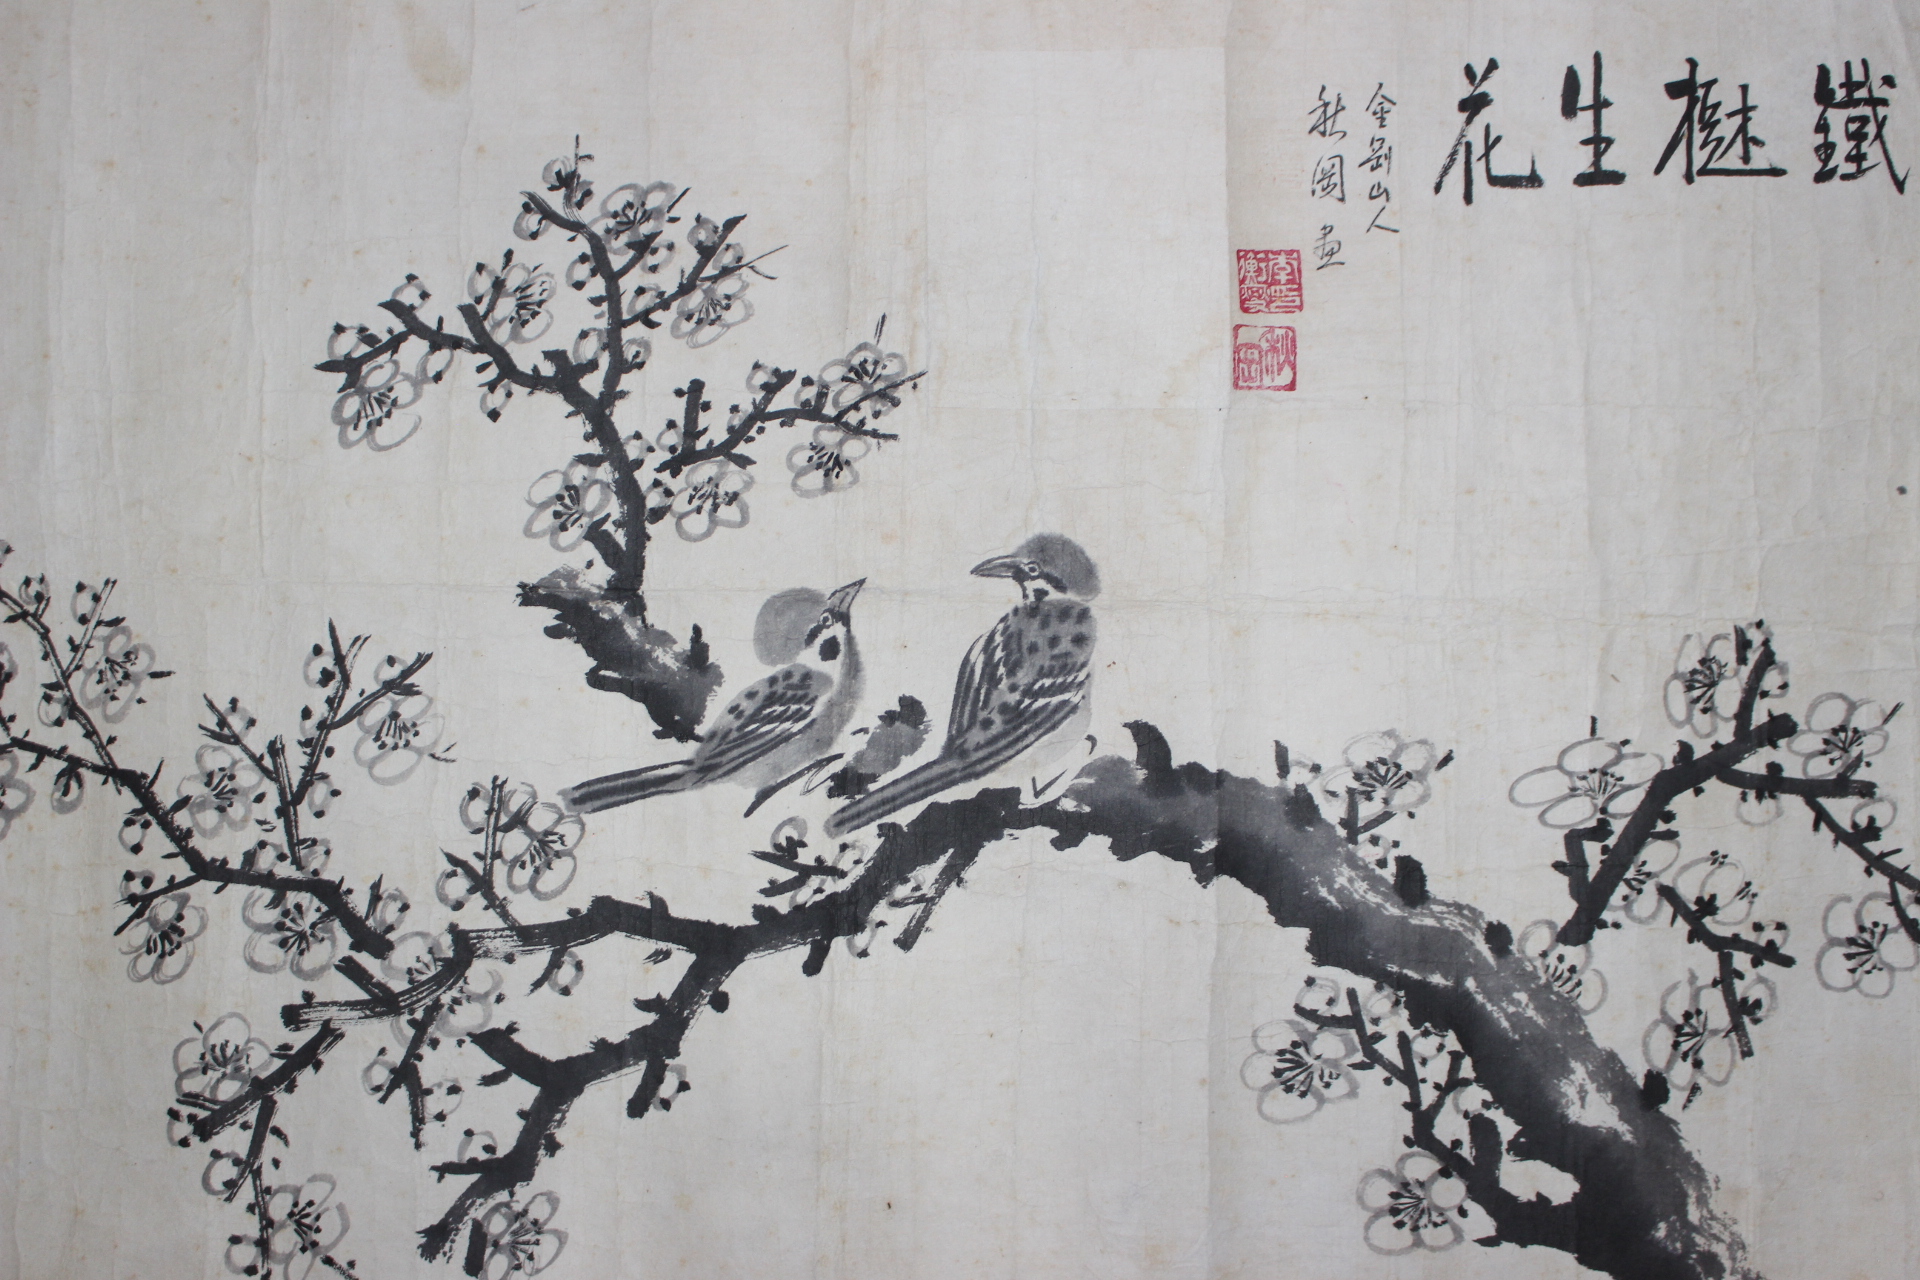 鐵樹生花
金剛山人
秋岡畫
秋岡